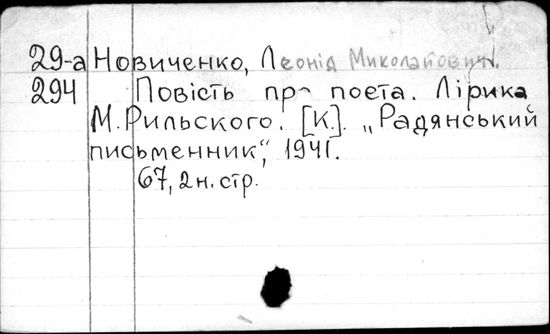 29-а Новиченко, Леонід Миколайович.
294 Повість про поета. Лірика
М. Рильского. [К.]. „Радянський
письменник", 1941.
67, 2 н. стр.